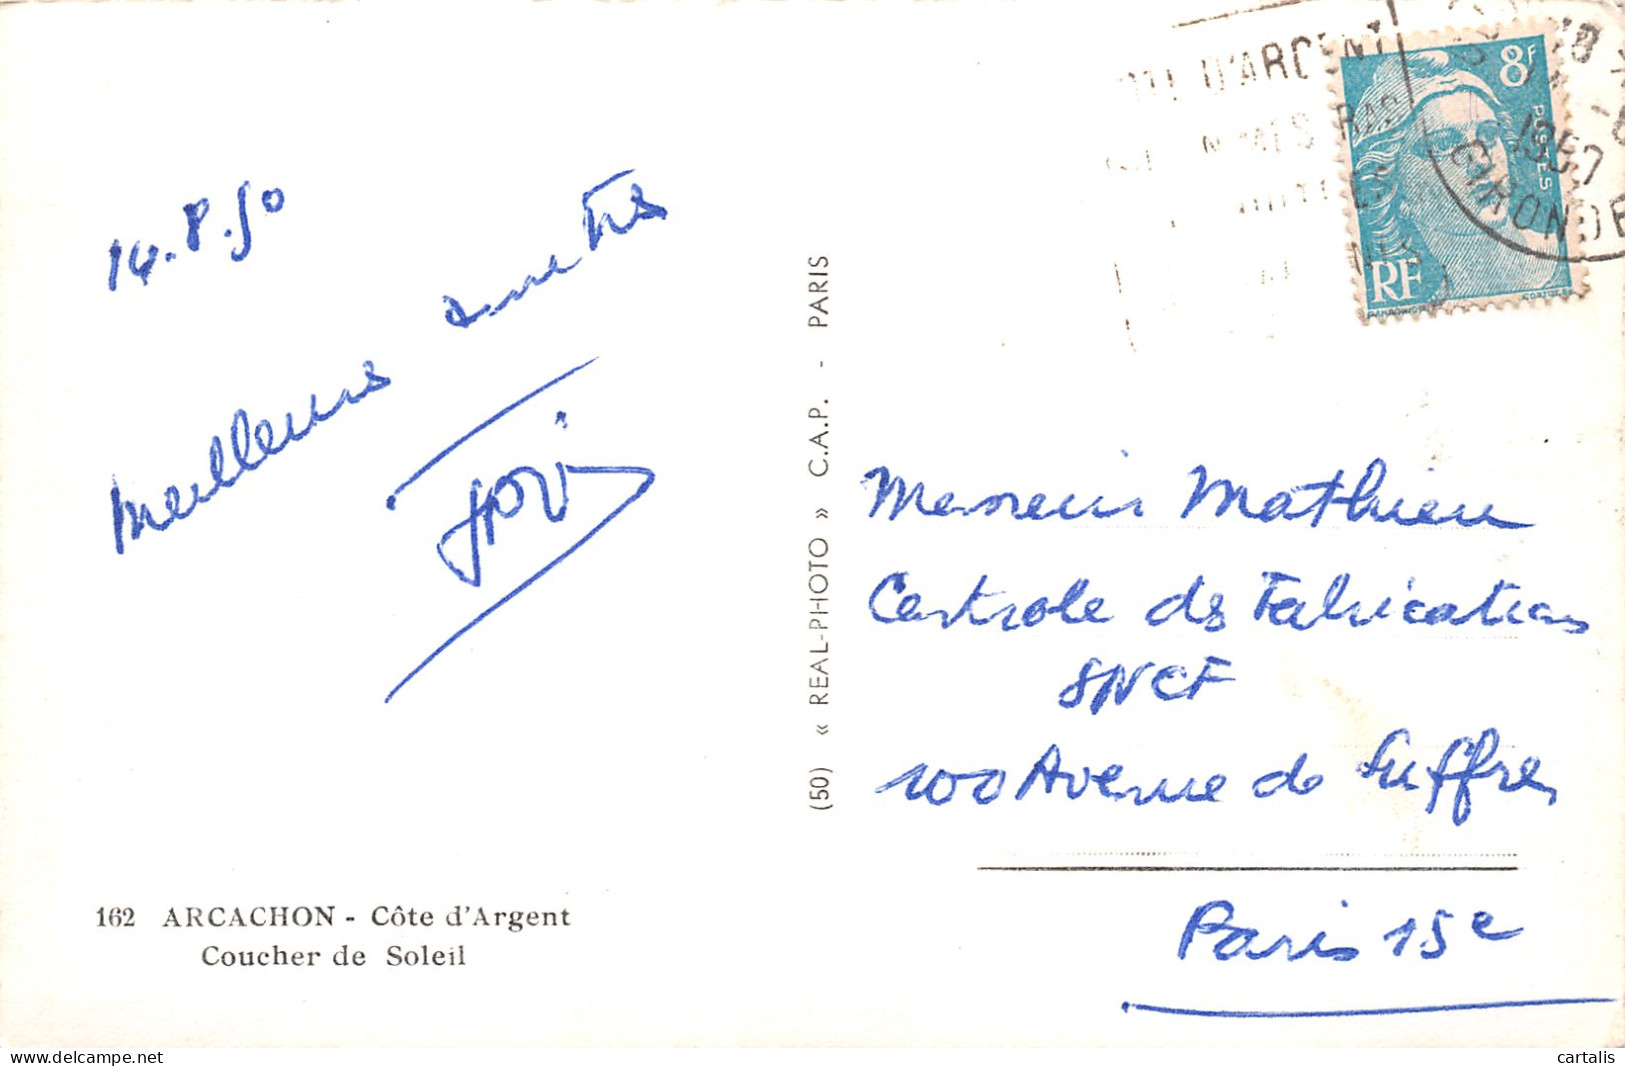 14.8.50
Meilleures amitiés
162 ARCACHON - Côte d'Argent
Coucher de Soleil
(50) « REAL-PHOTO » C.A.P. - PARIS
D'ARGENT
8F
POSTES
RF
GIRONDE
Monsieur Mathieu
Controle des Fabrications
SNCF
100 Avenue de Suffren
Paris 15e
cartalis